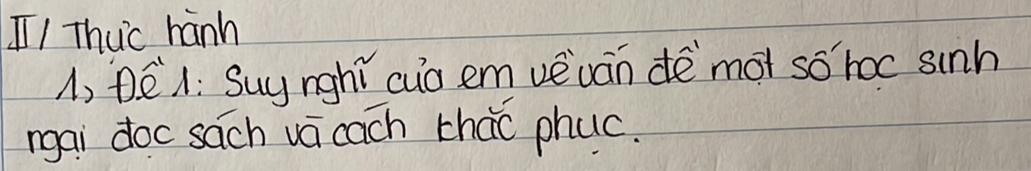 II/ Thực hành
1, Đề 1: Suy nghĩ của em về vấn đề một số học sinh
ngại đọc sách và cách khắc phục.